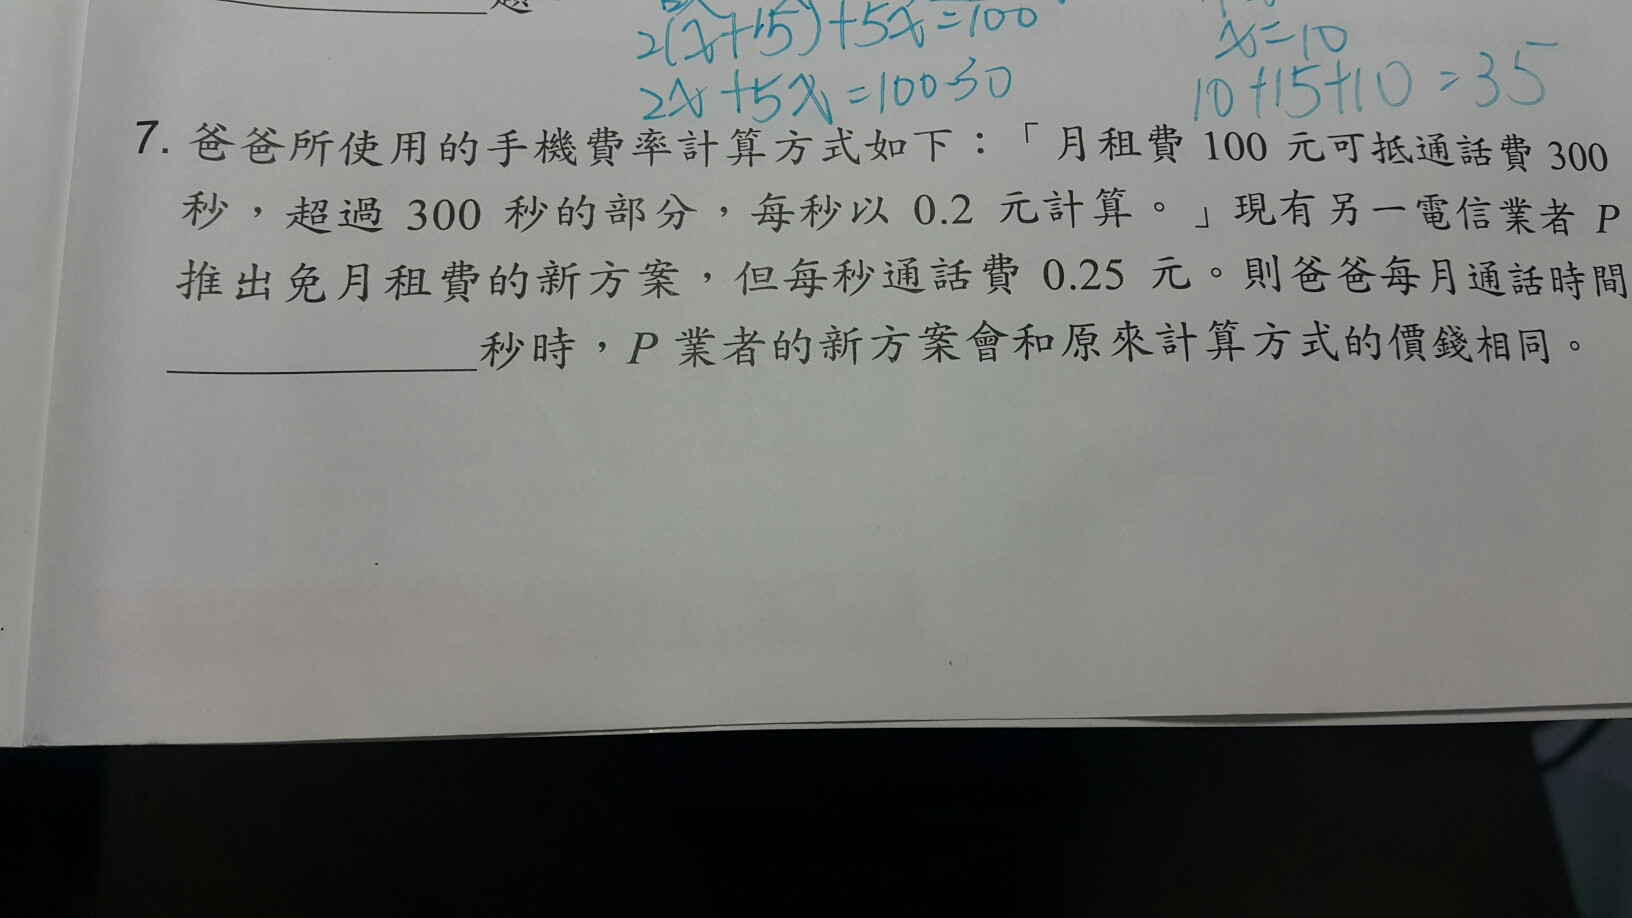 題。
2(x+15)+5x=100
x=10
2x+5x=100-30
10+15+10=35
7. 爸爸所使用的手機費率計算方式如下：「月租費 100 元可抵通話費 300
秒，超過 300 秒的部分，每秒以 0.2 元計算。」現有另一電信業者 P
推出免月租費的新方案，但每秒通話費 0.25 元。則爸爸每月通話時間
秒時，P 業者的新方案會和原來計算方式的價錢相同。